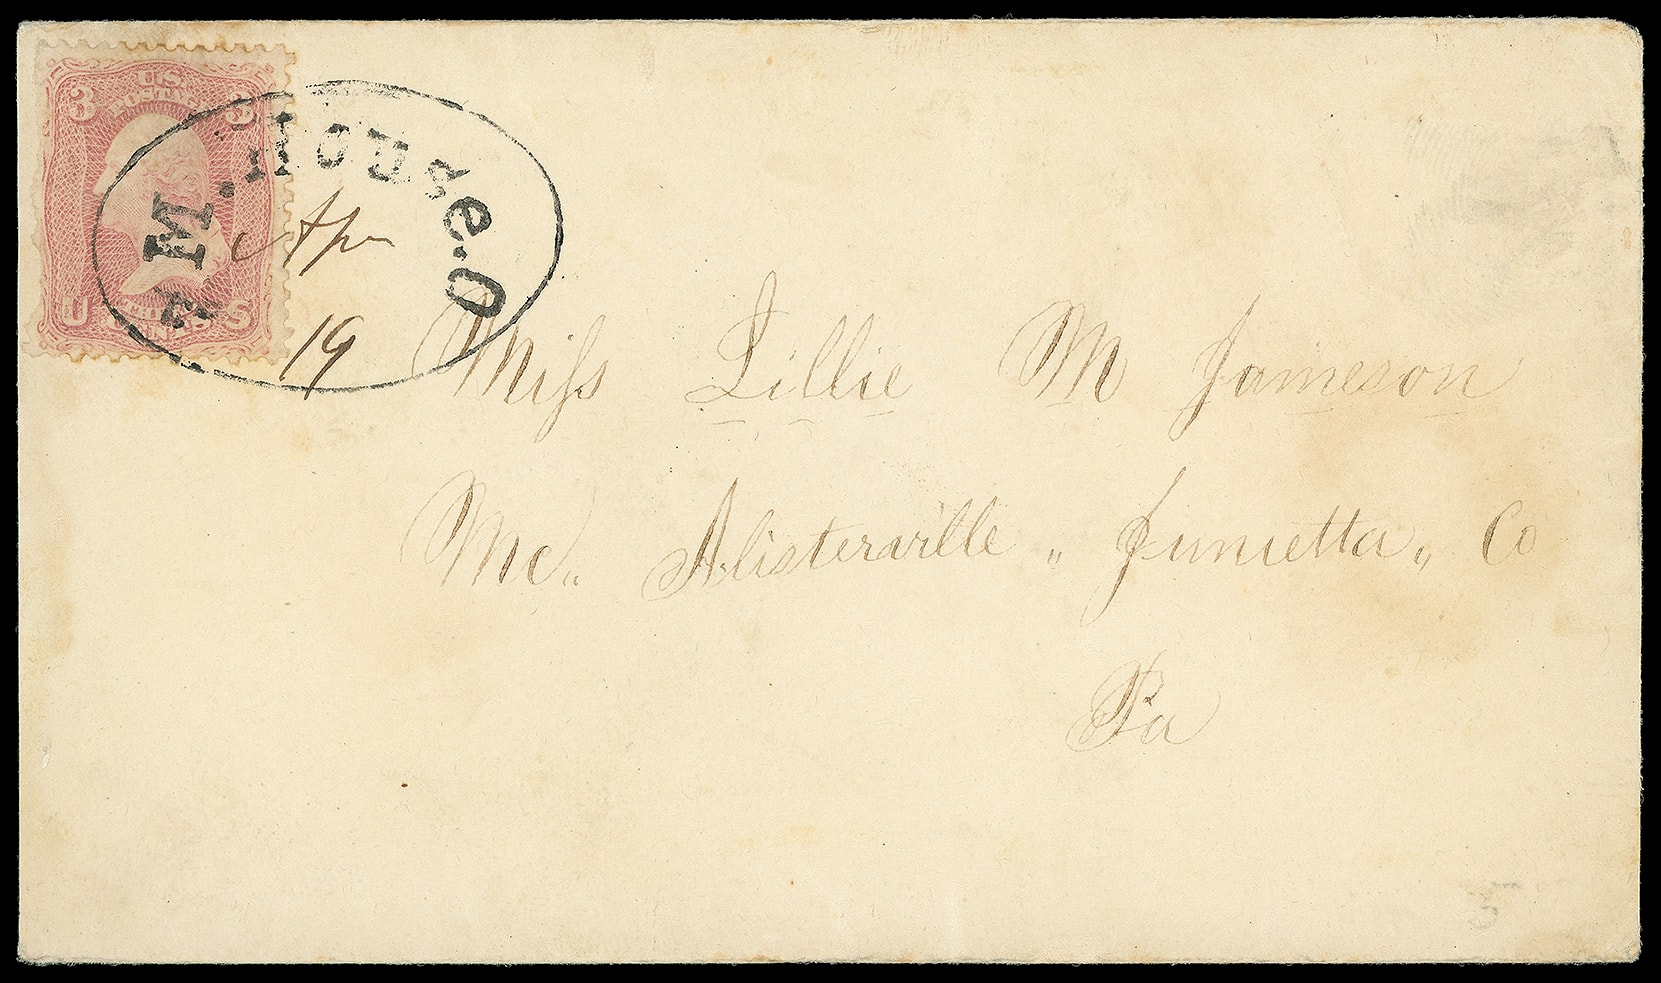 U.S.
POSTAGE
3 3
U S
CENTS
M. House. O
Apr
19
Miss Lillie M Jameson
Mc„ Alisterville „ Junietta „ Co
Pa